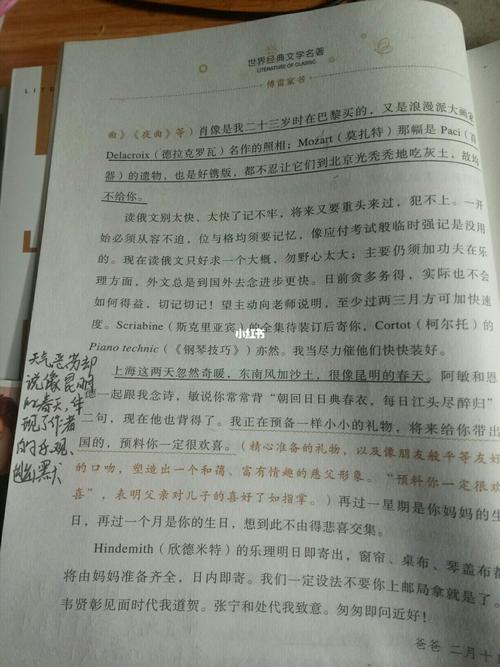 世界经典文学名著
LITERATURE OF CLASSIC
傅雷家书
曲》《夜曲》等）肖像是我二十三岁时在巴黎买的，又是浪漫派大画家
Delacroix（德拉克罗瓦）名作的照相；Mozart（莫扎特）那幅是 Paci（百
器）的遗物，也是好镌版，都不忍让它们到北京光秃秃地吃灰土，故均
不给你。
读俄文别太快，太快了记不牢，将来又要重头来过，犯不上。一开
始必须从容不迫，位与格均须要记忆，像应付考试般临时强记是没用
的。现在读俄文只好求一个大概，勿野心太大；主要仍须加功夫在乐
理方面，外文总是到国外去念进步更快。目前贪多务得，实际也不会
如何得益，切记切记！望主动向老师说明，至少过两三月方可加快速
度。Scriabine（斯克里亚宾）的全集待装订后寄你，Cortot（柯尔托）的
Piano technic（《钢琴技巧》）亦然。我当尽力催他们快快装好。
上海这两天忽然奇暖，东南风加沙土，很像昆明的春天。阿敏和恩
德一起跟我念诗，敏说你常常背“朝回日日典春衣，每日江头尽醉归”
二句，现在他也背得了。我正在预备一样小小的礼物，将来给你带出
国的，预料你一定很欢喜。（精心准备的礼物，以及像朋友般平等友好
的口吻，塑造出一个和蔼、富有情趣的慈父形象。“预料你一定很欢
喜”，表明父亲对儿子的喜好了如指掌。）再过一星期是你妈妈的生
日，再过一个月是你的生日，想到此不由得悲喜交集。
Hindemith（欣德米特）的乐理明日即寄出，窗帘、桌布、琴盖布都
将由妈妈准备齐全，日内即寄。我们一定设法不要你上邮局拿就是了。
韦贤彰见面时代我道贺。张宁和处代我致意。匆匆即问近好！
爸爸 二月十
天气恶劣却
说像昆明
的春天，体
现了作者
的乐观、
幽默
小红书
LIT